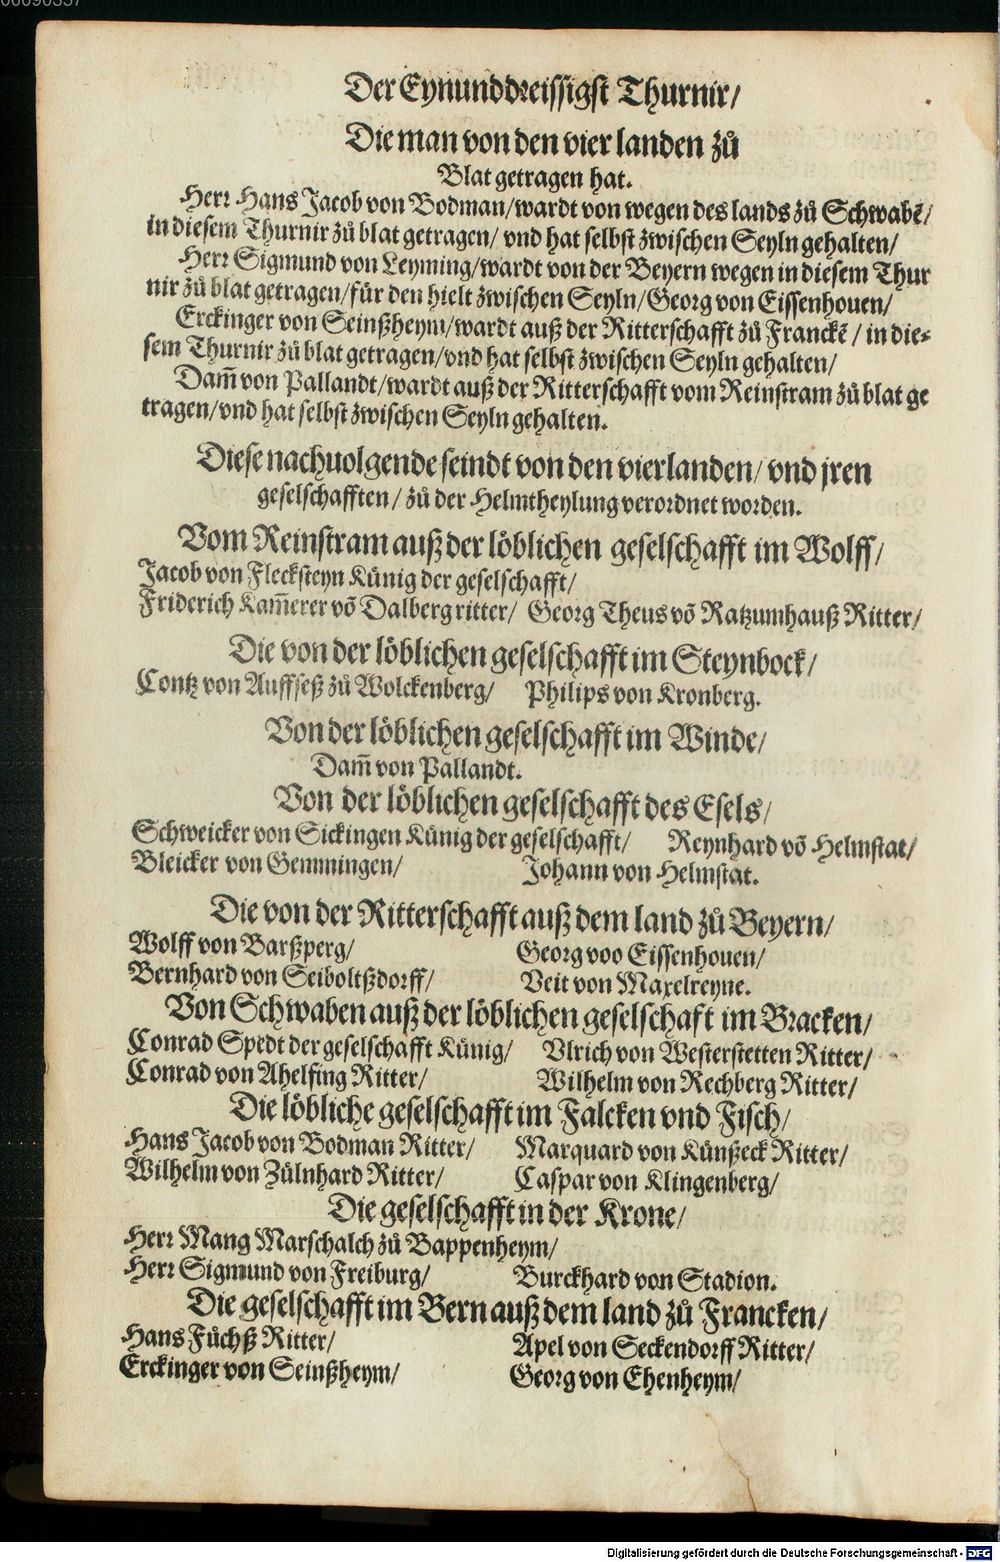 Der Eynunddreissigst Thurnir/
Die man von den vier landen zů
Blat getragen hat.
Herr Hans Jacob von Bodman/wardt von wegen des lands zů Schwabẽ/
in diesem Thurnir zů blat getragen/ vnd hat selbst zwischen Seyln gehalten/
Herr Sigmund von Leyming/wardt von der Beyern wegen in diesem Thur
nir zů blat getragen/für den hielt zwischen Seyln/Georg von Eissenhouen/
Erckinger von Seinßheym/wardt auß der Ritterschafft zů Franckẽ/ in die-
sem Thurnir zů blat getragen/vnd hat selbst zwischen Seyln gehalten/
Dam̃ von Pallandt/wardt auß der Ritterschafft vom Reinstram zů blat ge
tragen/vnd hat selbst zwischen Seyln gehalten.
Diese nachuolgende seindt von den vierlanden/ vnd jren
geselschafften/ zů der Helmtheylung verordnet worden.
Vom Reinstram auß der löblichen geselschafft im Wolff/
Jacob von Fleckstein Künig der geselschafft/
Friderich Kam̃erer võ Dalberg ritter/ Georg Theus võ Ratzumhauß Ritter/
Die von der löblichen geselschafft im Steynbock/
Contz von Auffseß zů Wolckenberg/ Philips von Kronberg.
Von der löblichen geselschafft im Winde/
Dam̃ von Pallandt.
Von der löblichen geselschafft des Esels/
Schweicker von Sickingen Künig der geselschafft/ Reynhard võ Helmstat/
Bleicker von Gemmingen/ Johann von Helmstat.
Die von der Ritterschafft auß dem land zů Beyern/
Wolff von Barßperg/ Georg voo Eissenhouen/
Bernhard von Seiboltßdorff/ Veit von Maxelreyne.
Von Schwaben auß der löblichen geselschaft im Bracken/
Conrad Spedt der geselschafft Künig/ Vlrich von Westerstetten Ritter/
Conrad von Ahelfing Ritter/ Wilhelm von Rechberg Ritter/
Die löbliche geselschafft im Falcken vnd Fisch/
Hans Jacob von Bodman Ritter/ Marquard von Künßeck Ritter/
Wilhelm von Zülnhard Ritter/ Caspar von Klingenberg/
Die geselschafft in der Krone/
Herr Mang Marschalch zů Bappenheym/
Herr Sigmund von Freiburg/ Burckhard von Stadion.
Die geselschafft im Bern auß dem land zů Francken/
Hans Füchß Ritter/ Apel von Seckendorff Ritter/
Erckinger von Seinßheym/ Georg von Ehenheym/
Digitalisierung gefördert durch die Deutsche Forschungsgemeinschaft - DFG